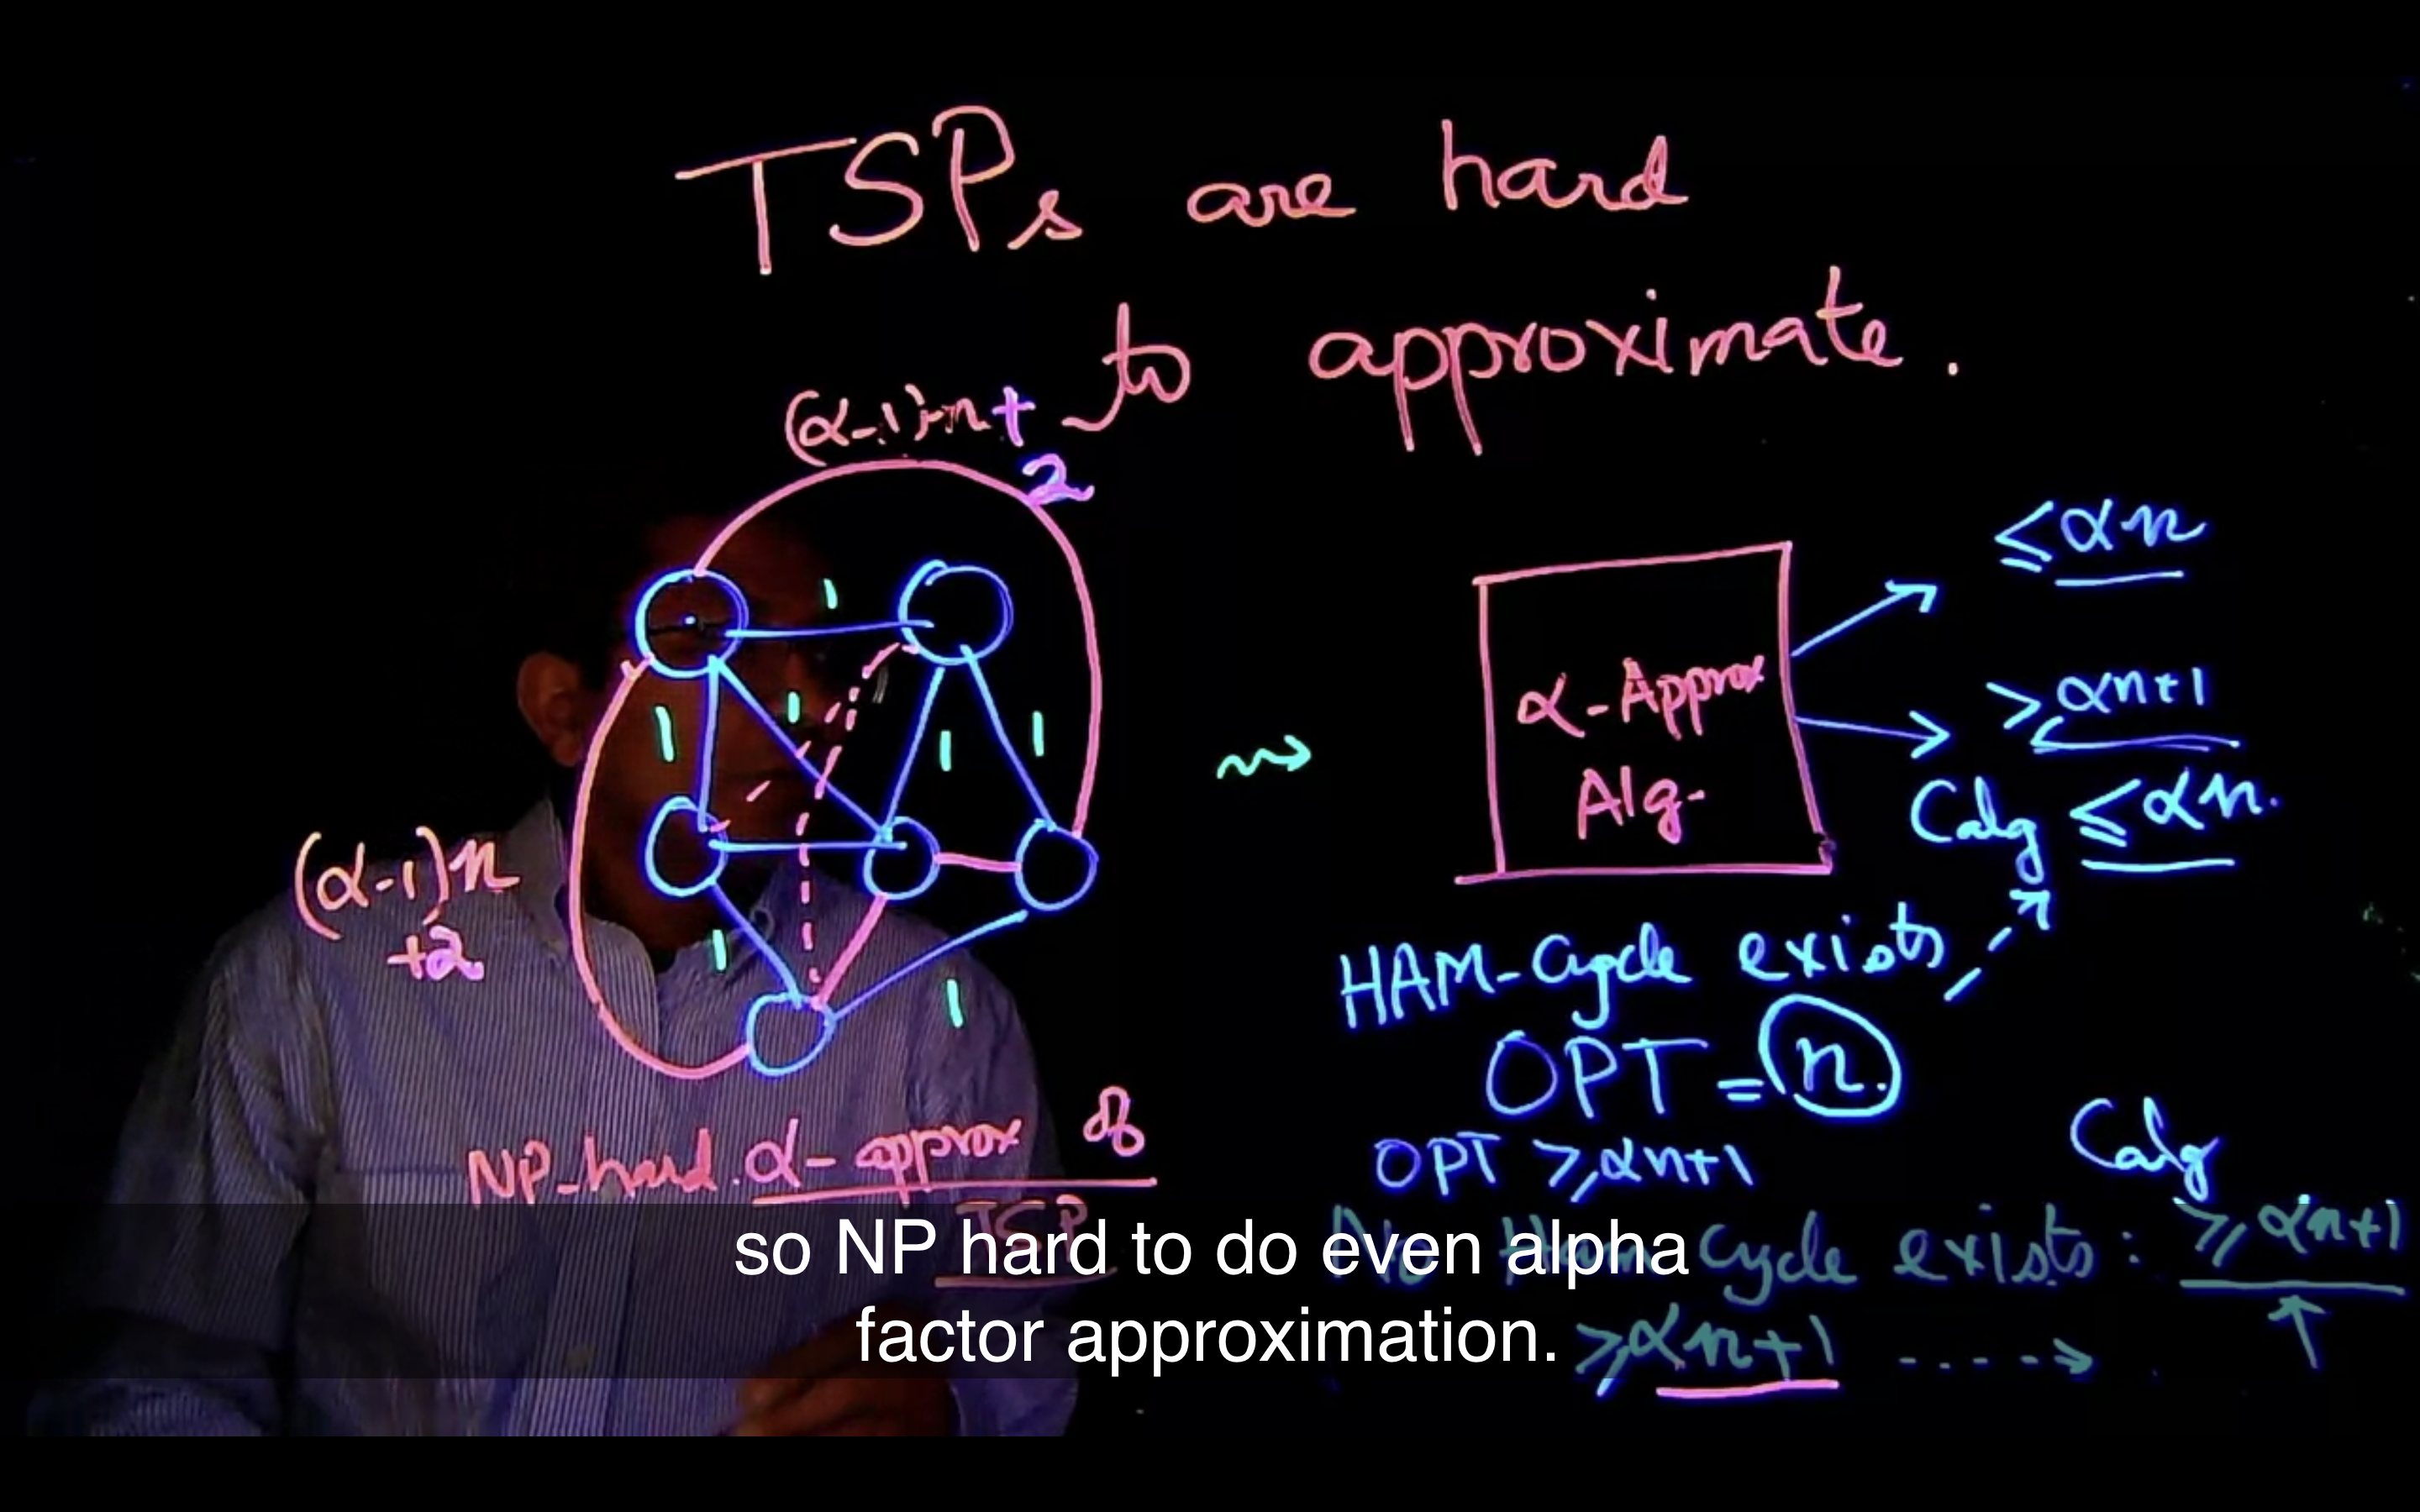 TSPs are hard
to approximate.
(α-1)·n+
2
≤αn
1
1
1
1
1
1
1
≥αn+1
α-Approx
Alg.
Calg ≤αn.
(α-1)n
+2
HAM-Cycle exists
OPT = n.
NP-hard. α-approx of
TSP
OPT ≥αn+1
Calg
No Ham Cycle exists: ≥αn+1
≥αn+1
so NP hard to do even alpha
factor approximation.